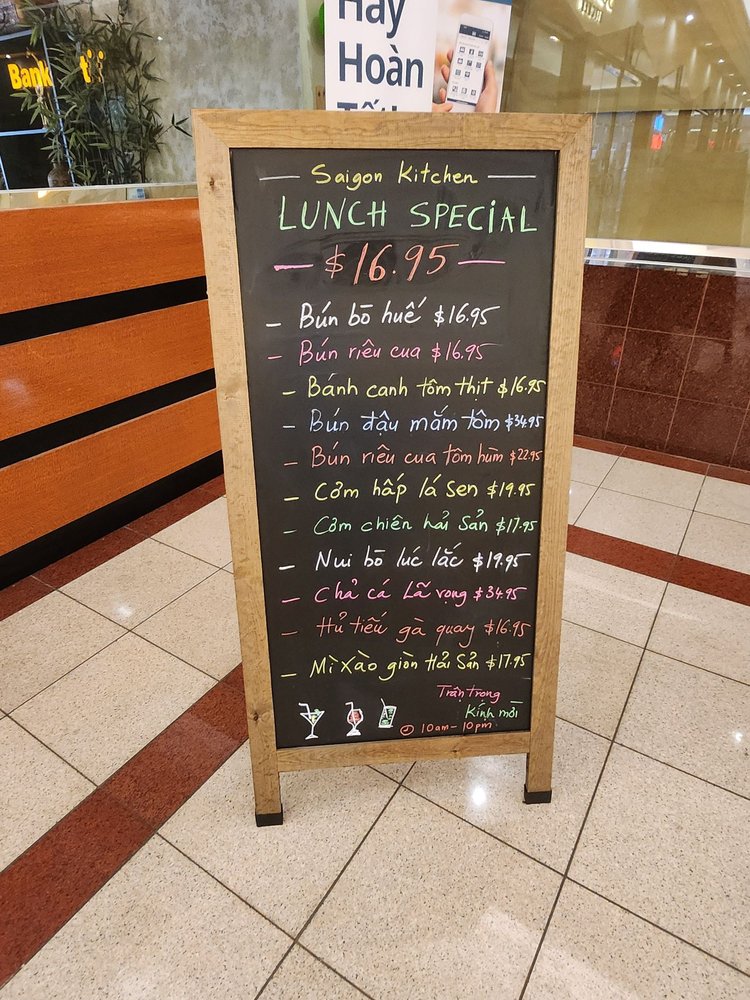 Hãy
Hoàn
Bank
Saigon Kitchen
LUNCH SPECIAL
$16.95
- Bún bò huế $16.95
- Bún riêu cua $16.95
- Bánh canh tôm thịt $16.95
- Bún đậu mắm tôm $34.95
- Bún riêu cua tôm hùm $22.95
- Cơm hấp lá sen $19.95
- Cơm chiên hải sản $17.95
- Nui bò lúc lắc $19.95
- Chả cá Lã vọng $34.95
- Hủ tiếu gà quay $16.95
- Mì xào giòn Hải Sản $17.95
Trân trọng
Kính mời
10am - 10pm